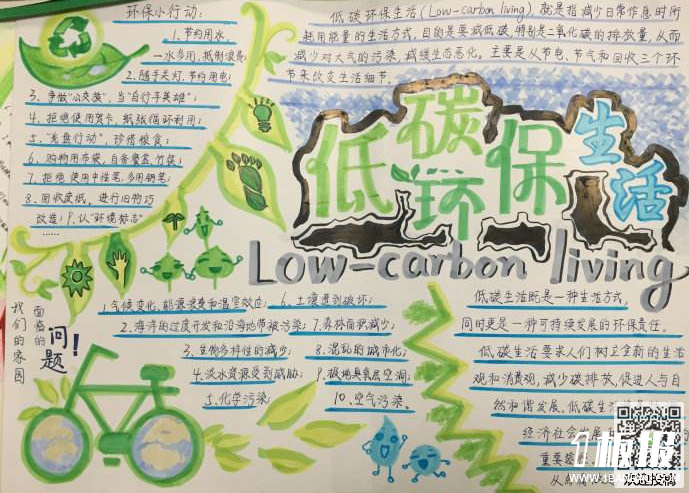 环保小行动：
1.节约用水，
一水多用，抵制浪费；
2.随手关灯，节约用电；
3.争做"公交族"，当"自行车英雄"；
4.拒绝使用贺卡，纸张循环利用；
5."光盘行动"，珍惜粮食；
6.购物用布袋，自备餐盒、竹筷；
7.拒绝使用中性笔，多用钢笔；
8.回收废纸，进行旧物巧
改造；9.认"环境标志"
……
低碳环保生活(Low-carbon living)，就是指减少日常作息时所
耗用能量的生活方式，目的是要减低碳，特别是二氧化碳的排放量，从而
减少对大气的污染，减缓生态恶化。主要是从节电、节气和回收三个环
节来改变生活细节。
低碳环保生活
Low-carbon living
我们的家园
面临的
问题！
1.气候变化、能源浪费和温室效应；
2.海洋的过度开发和沿海地带被污染；
3.生物多样性的减少；
4.淡水资源受到威胁；
5.化学污染；
6.土壤遭到破坏；
7.森林面积减少；
8.混乱的城市化；
9.极地臭氧层空洞；
10.空气污染。
低碳生活既是一种生活方式，
同时更是一种可持续发展的环保责任。
低碳生活要求人们树立全新的生活
观和消费观，减少碳排放，促进人与自
然和谐发展。低碳生
经济社会发展
重要途